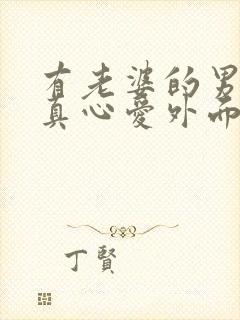 有老婆的男
真心爱外面
丁賢